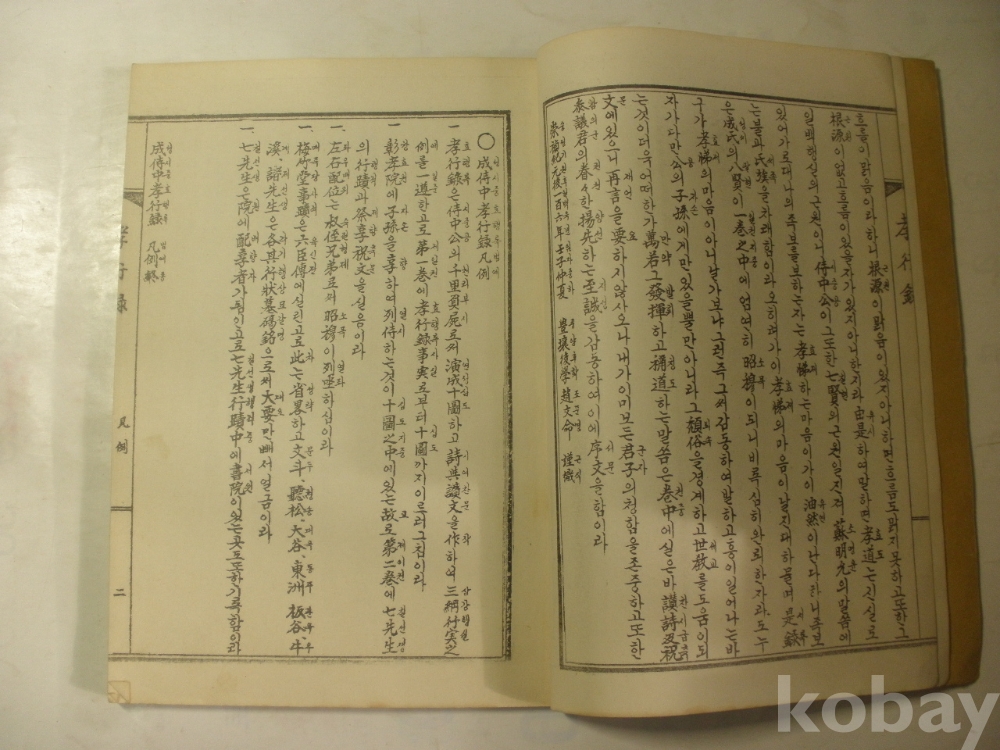 흐름이 맑음이라 하니 根源이 맑음이 있지 아니하면 흐름도 또 맑지 못하고 또한 그
根源이 없고 흐름이 있을 자가 있지 아니한지라 由是하야 말하면 孝道는 진실로
일백 행실의 근원이니 侍中公이 그 또한 七賢의 근원일진저 蘇明允의 말씀에
있어 가로대 나의 족보를 보는 자는 孝悌하는 마음이 가히 油然이 나나니라 하니 족보
는 불과 氏族을 차례함이라 오히려 가이 孝悌의 마음이 날진대 하물며 是錄
은 成氏의 八賢이 一卷之中에 엄연히 昭穆이 되니 비록 심히 완뢰한 자라도 누
구가 孝悌의 마음이 아니 날가보냐 그런즉 그 써 감동하여 발하고 흥이 일어나는 바
자가 다만 公의 子孫에게만 있을 뿐만 아니라 그 頹俗을 경계하고 世敎를 도음이 도
는 것이 더욱 어떠한가 萬若 그 發揮하고 稱道하는 말씀은 卷中에 실은 바 讚詩及祝
文에 있으니 再言을 要하지 않사오나 내가 이미 모든 君子의 청함을 존중하고 또한
參議君의 眷眷 揚先하는 至誠을 감동하여 이에 序文을 함이라
崇禎紀元後一百六年壬子仲夏 豊壤後學 趙文命 謹識
孝行錄
凡例
○ 成侍中孝行錄凡例
一 孝行錄은 侍中公의 千里負屍로써 演成十圖하고 詩與讚文을 作하여 三綱行実之
例를 一道하고 로 第一卷에 孝行錄事実로부터 十圖까지 이르러 그침이라
一 彰孝院에 子孫을 享하여 列侍하는 것이 十圖之中에 있는 故로 第二卷에 七先生
의 行蹟과 祭享祝文을 실음이라
一 左右配位는 叔侄兄弟로써 昭穆이 列坐하심이라
一 梅竹堂事蹟은 六臣傳에 실린 고로 此는 省畧하고 文斗、聽松、大谷、東洲、板谷、牛
溪、諸先生은 各其行狀墓碣銘으로써 大要만 빼서 얻금이라
一 七先生을 院에 配享者가 됨인 고로 七先生行蹟中에 書院이 있는 곳도 또한 기록함이라
成侍中孝行錄 凡例終
孝行錄
二
kobay